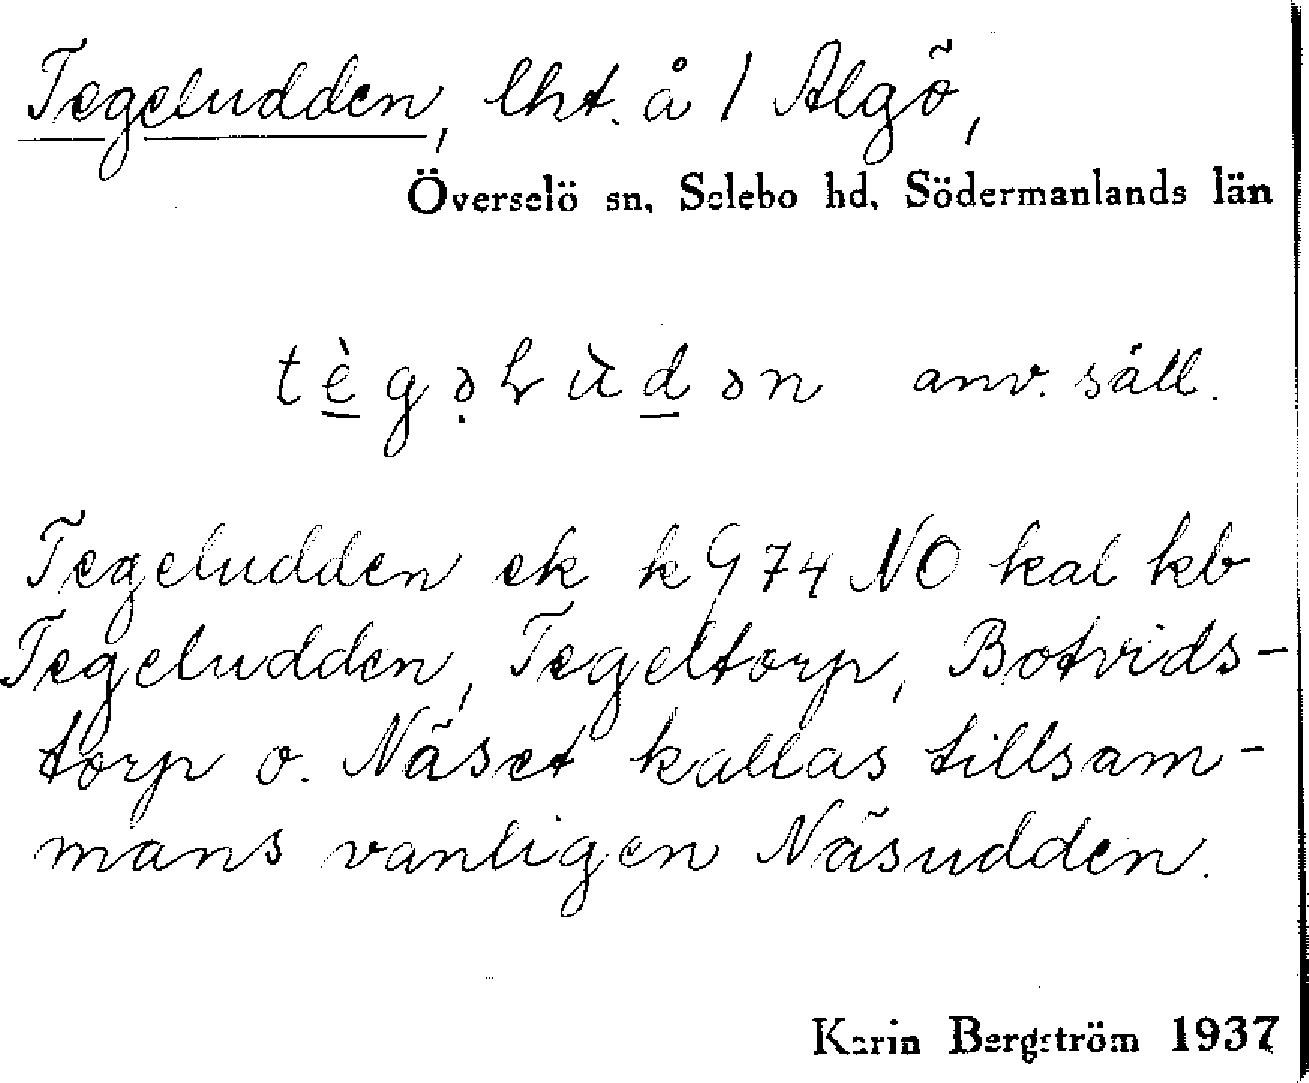 Tegeludden, lht. å 1 Algö,
Överselö sn, Selebo hd, Södermanlands län
tègəɽùdən anv. säll.
Tegeludden ek k G 74 NO kal kb
Tegeludden, Tegeltorp, Botvids-
torp o. Näset kallas tillsam-
mans vanligen Näsudden.
Karin Bergström 1937